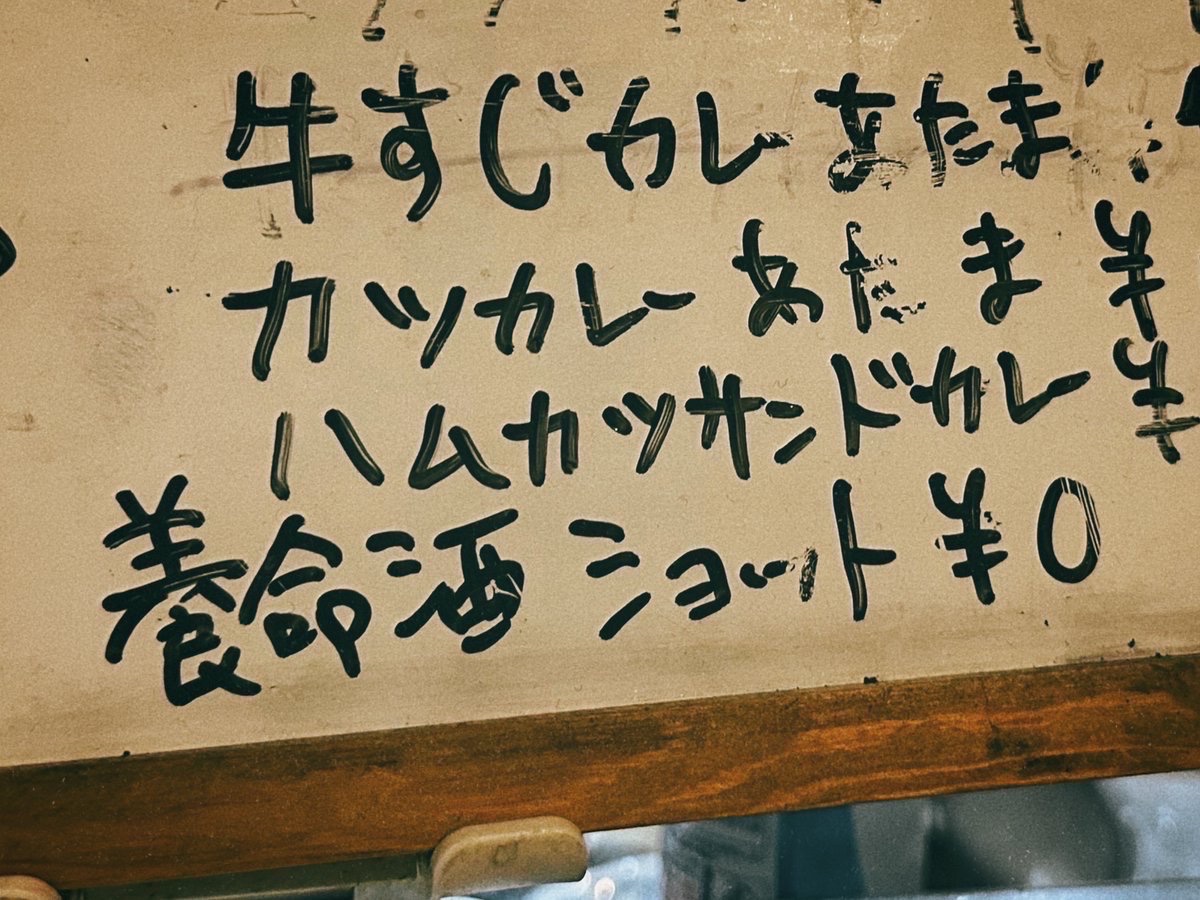 牛すじカレーあたま
カツカレーあたま ¥
ハムカツサンドカレー ¥
養命酒ショット ¥0